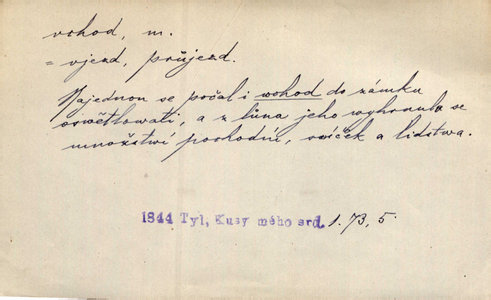 vchod, m.
= vjezd, průjezd.
Najednou se počal i wchod do zámku
oswětlowati, a z lůna jeho wyhrnulo se
množstwí pochodní, swíček a lidstwa.
1844 Tyl, Kusy mého srd. 1. 73, 5.